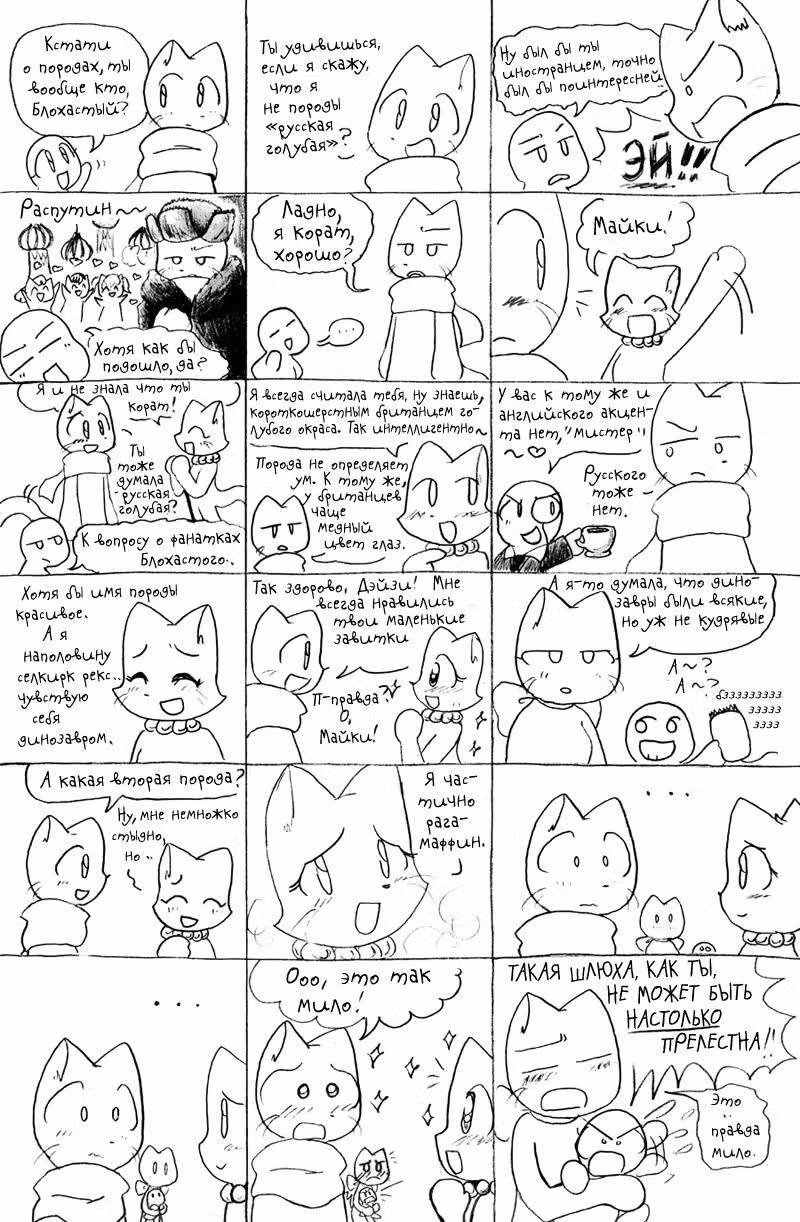 Кстати
о породах, ты
вообще кто,
Блохастый?
Ты удивишься,
если я скажу,
что я
не породы
«русская
голубая»?
Ну был бы ты
иностранцем, точно
был бы поинтересней.
ЭЙ!!
Распутин~~
Хотя как бы
подошло, да?
Ладно,
я корат,
хорошо?
...
Майки!
Я и не знала что ты
корат!
Ты
тоже
думала
русская
голубая?
К вопросу о фанатках
Блохастого..
Я всегда считала тебя, ну знаешь,
короткошерстным британцем го-
лубого окраса. Так интеллигентно~
Порода не определяет
ум. К тому же,
у британцев
чаще
медный
цвет глаз.
У вас к тому же и
английского акцен-
та нет, "Мистер"
~♡
Русского
тоже
нет.
Хотя бы имя породы
красивое.
А я
наполовину
селкирк рекс..
чувствую
себя
динозавром.
Так здорово, Дэйзи! Мне
всегда нравились
твои маленькие
завитки
П-правда?
О,
Майки!
А я-то думала, что дино-
завры были всякие,
но уж не кудрявые
А~?
А~?
бззззззззз
ззззз
зззз
А какая вторая порода?
Ну, мне немножко
стыдно,
но..
Я час-
тично
рага-
маффин.
...
...
Ооо, это так
мило!
ТАКАЯ ШЛЮХА, КАК ТЫ,
НЕ МОЖЕТ БЫТЬ
НАСТОЛЬКО
ПРЕЛЕСТНА!!
Это
..
правда
мило.